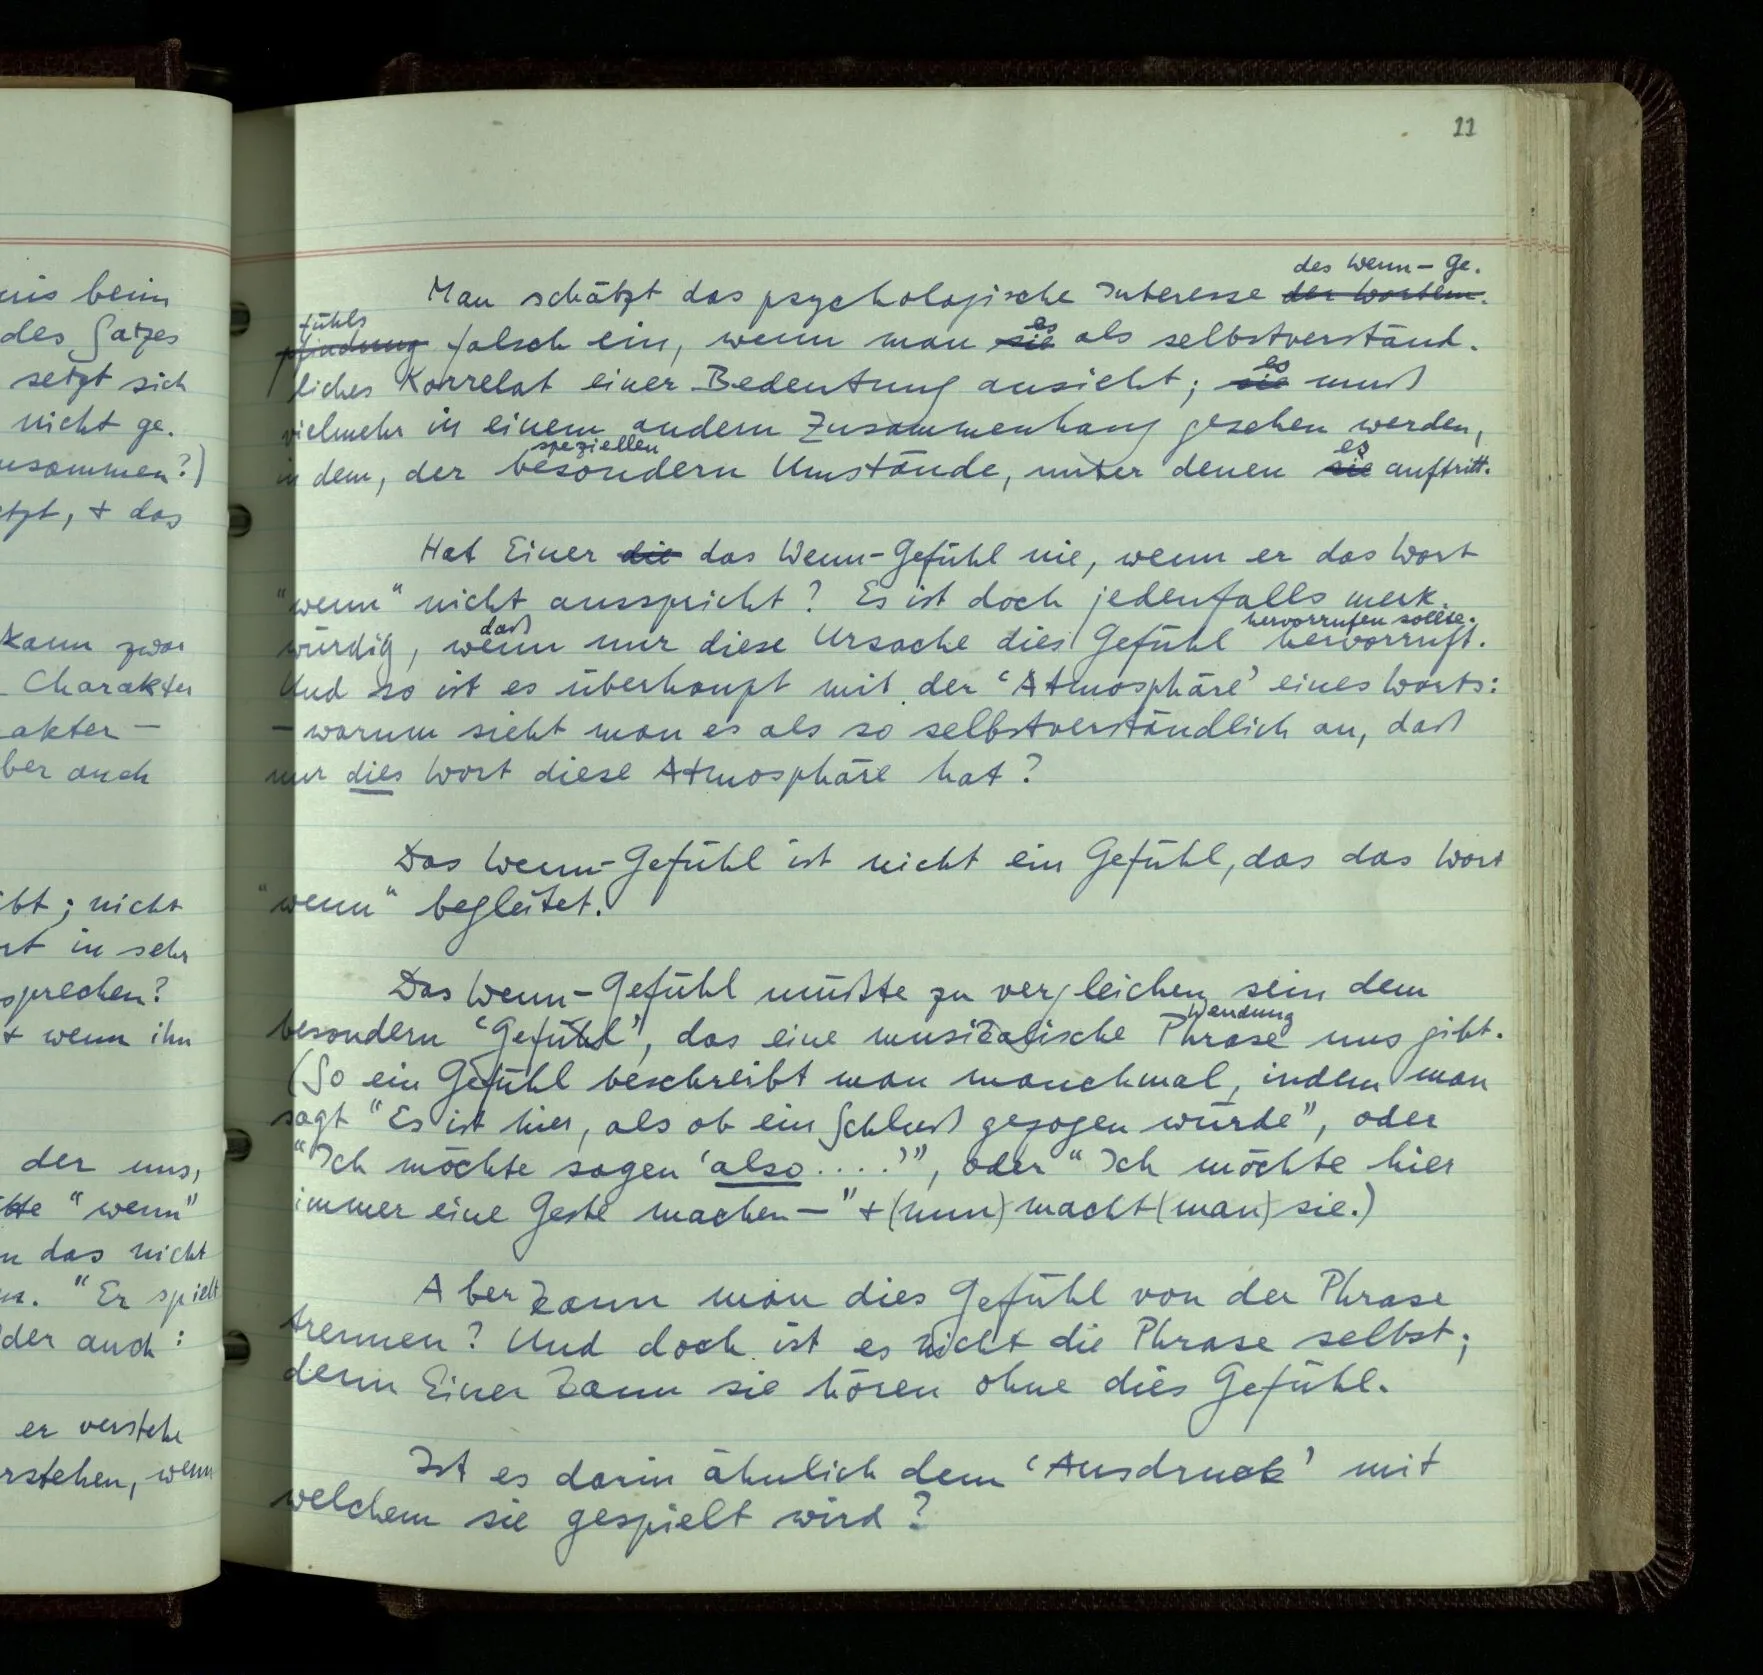 nis beim
des Satzes
setzt sich
nicht ge-
zusammen?)
etzt, + das
kann zwar
Charakter
akter –
ber auch
ibt; nicht
rt in sehr
sprechen?
+ wenn ihn
der uns,
"wenn"
n das nicht
"Er spielt
der auch:
er verstehe
rstehen, wenn
11
des Wenn-Ge-
Man schätzt das psychologische Interesse der Wortem-
fühls
pfindung falsch ein, wenn man sie es als selbstverständ-
liches Korrelat einer Bedeutung ansieht; sie es muß
vielmehr in einem andern Zusammenhang gesehen werden,
speziellen
in dem, der besondern Umstände, unter denen sie es auftritt.
Hat Einer die das Wenn-Gefühl nie, wenn er das Wort
"wenn" nicht ausspricht? Es ist doch jedenfalls merk-
daß hervorrufen sollte.
würdig, wenn nur diese Ursache dies Gefühl hervorruft.
Und so ist es überhaupt mit der 'Atmosphäre' eines Worts:
– warum sieht man es als so selbstverständlich an, daß
nur dies Wort diese Atmosphäre hat?
Das Wenn-Gefühl ist nicht ein Gefühl, das das Wort
"wenn" begleitet.
Das Wenn-Gefühl müßte zu vergleichen sein dem
Wendung
besondern 'Gefühl', das eine musikalische Phrase uns gibt.
(So ein Gefühl beschreibt man manchmal, indem man
sagt "Es ist hier, als ob ein Schluß gezogen würde", oder
"Ich möchte sagen 'also....'", oder "Ich möchte hier
immer eine Geste machen –" + (nun) macht (man) sie.)
Aber kann man dies Gefühl von der Phrase
trennen? Und doch ist es nicht die Phrase selbst;
denn Einer kann sie hören ohne dies Gefühl.
Ist es darin ähnlich dem 'Ausdruck' mit
welchem sie gespielt wird?